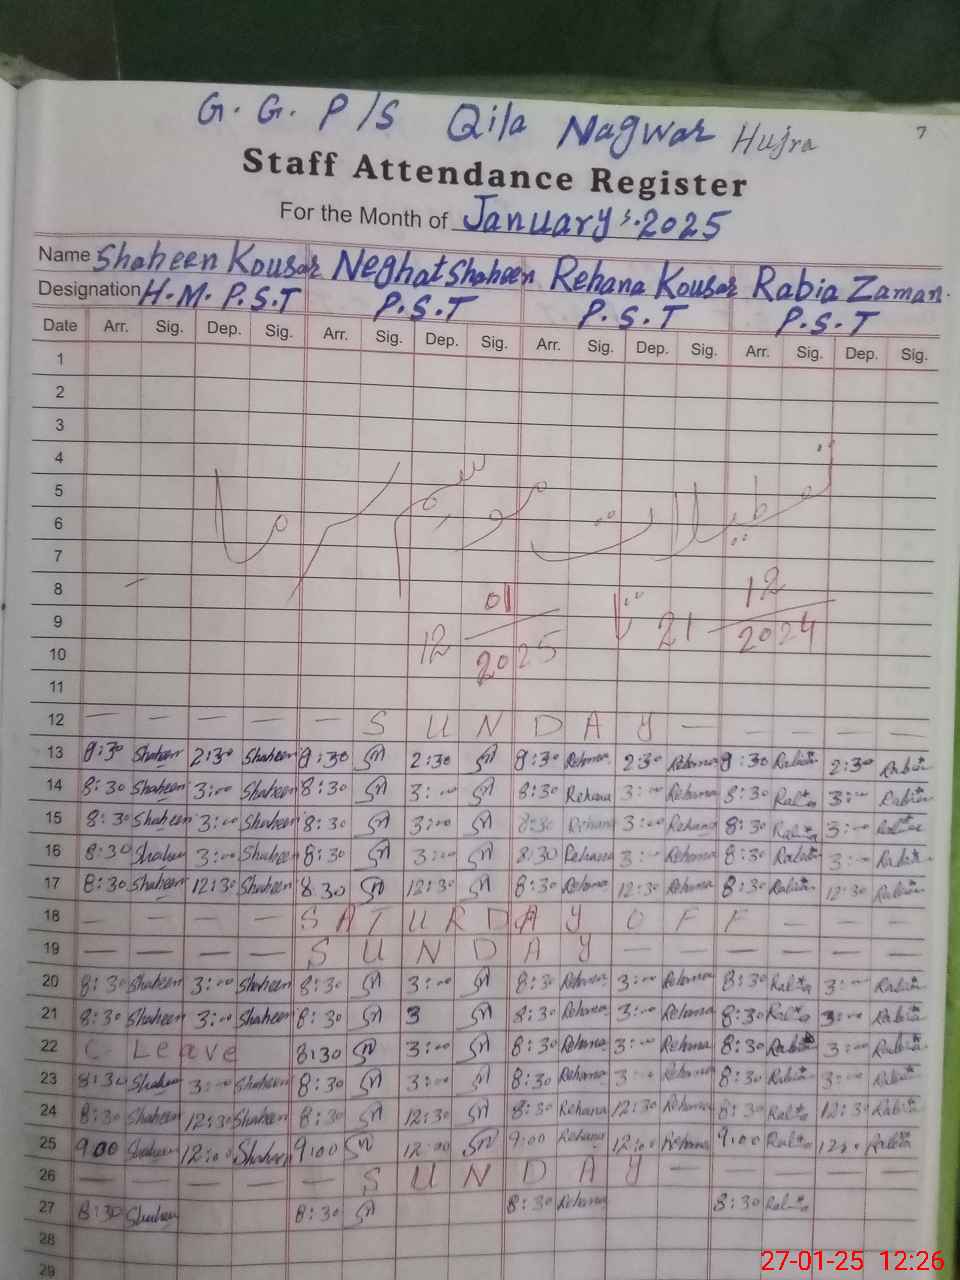 G. G. P/S Qila Nagwar Hujra
7
Staff Attendance Register
For the Month of January 2025
Name Shaheen Kousar Neghat Shaheen Rehana Kousar Rabia Zaman.
Designation H.M. P.S.T P.S.T P.S.T P.S.T
Date Arr. Sig. Dep. Sig. Arr. Sig. Dep. Sig. Arr. Sig. Dep. Sig. Arr. Sig. Dep. Sig.
1
2
3
4
5
6
7
8
9
10
11
تعطیلات موسم سرما
21 12/2024 تا 12 01/2025
12 — — — — — S U N D A Y — — — — —
13 8:30 Shaheen 2:30 Shaheen 8:30 2:30 8:30 Rehana 2:30 Rehana 8:30 Rabia 2:30 Rabia
14 8:30 Shaheen 3:00 Shaheen 8:30 3:00 8:30 Rehana 3:00 Rehana 8:30 Rabia 3:00 Rabia
15 8:30 Shaheen 3:00 Shaheen 8:30 3:00 8:30 Rehana 3:00 Rehana 8:30 Rabia 3:00 Rabia
16 8:30 Shaheen 3:00 Shaheen 8:30 3:00 8:30 Rehana 3:00 Rehana 8:30 Rabia 3:00 Rabia
17 8:30 Shaheen 12:30 Shaheen 8:30 12:30 8:30 Rehana 12:30 Rehana 8:30 Rabia 12:30 Rabia
18 — — — — S A T U R D A Y O F F — — —
19 — — — — S U N D A Y — — — — — —
20 8:30 Shaheen 3:00 Shaheen 8:30 3:00 8:30 Rehana 3:00 Rehana 8:30 Rabia 3:00 Rabia
21 8:30 Shaheen 3:00 Shaheen 8:30 3 8:30 Rehana 3:00 Rehana 8:30 Rabia 3:00 Rabia
22 C. Leave 8:30 3:00 8:30 Rehana 3:00 Rehana 8:30 Rabia 3:00 Rabia
23 8:30 Shaheen 3:00 Shaheen 8:30 3:00 8:30 Rehana 3:00 Rehana 8:30 Rabia 3:00 Rabia
24 8:30 Shaheen 12:30 Shaheen 8:30 12:30 8:30 Rehana 12:30 Rehana 8:30 Rabia 12:30 Rabia
25 9:00 Shaheen 12:00 Shaheen 9:00 12:00 9:00 Rehana 12:00 Rehana 9:00 Rabia 12:0 Rabia
26 — — — — — S U N D A Y — — — — —
27 8:30 Shaheen 8:30 8:30 Rehana 8:30 Rabia
28
29
27-01-25 12:26